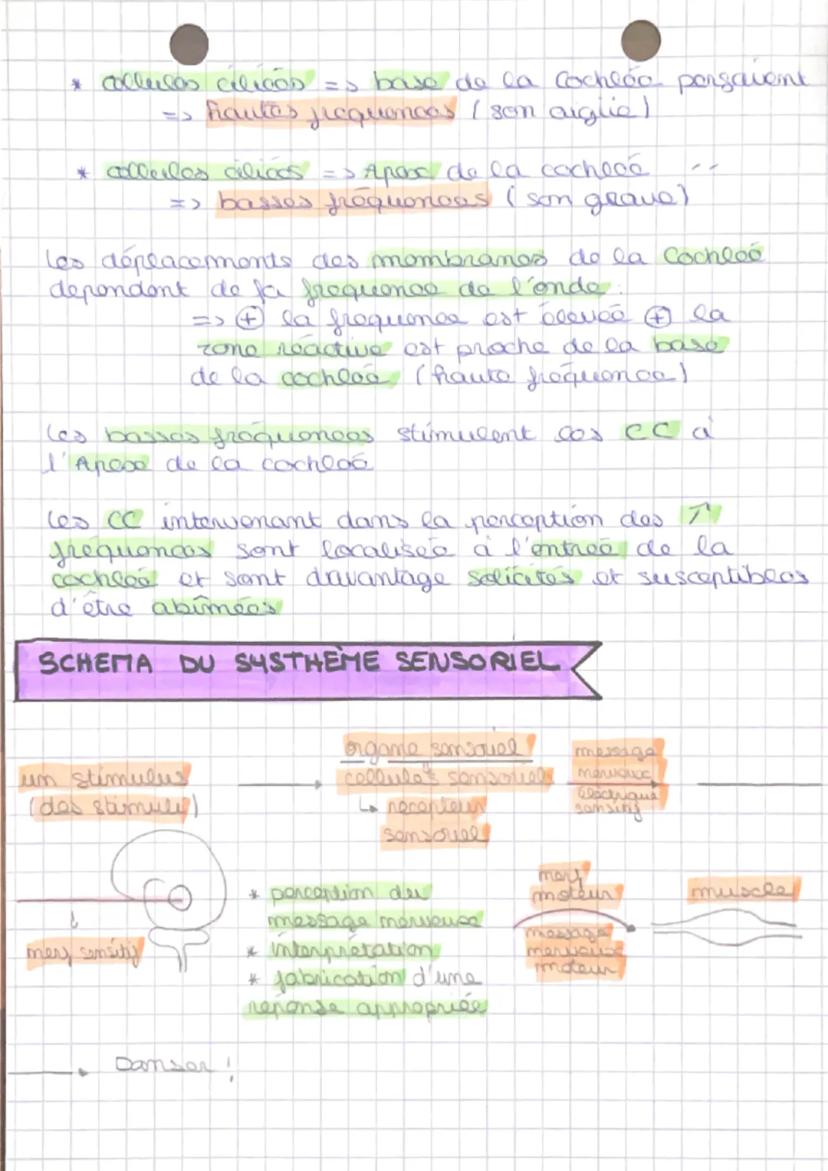 * cellules ciliées => base de la cochlée perçoivent
=> hautes fréquences (son aigüe)
* cellules ciliées => Apex de la cochleé --
=> basses fréquences (son grave)
Les déplacements des membranes de la Cochleé
dependent de la frequence de l'onde.
=> + la frequence est élevée + la
zone réactive est proche de la base
de la cochleé (haute fréquence)
Les basses fréquences stimulent les CC à
l'Apexe de la cochleé
Les CC intervenant dans la perception des ↑
frequences sont localiseé à l'entreé de la
cochleé et sont davantage solicités et susceptibles
d'être abîmées
SCHEMA DU SYSTHÈME SENSORIEL
un stimulus
(des stimuli)
organe sensoriel
cellules sensoriels
↳ recepteur
sensoriel
message
nerveux
électrique
sensitif
nerf sensitif
* perception du
message nerveuse
* interprétation
* fabrication d'une
réponse appropriée
nerf
moteur
message
nerveux
moteur
muscle
Danser !